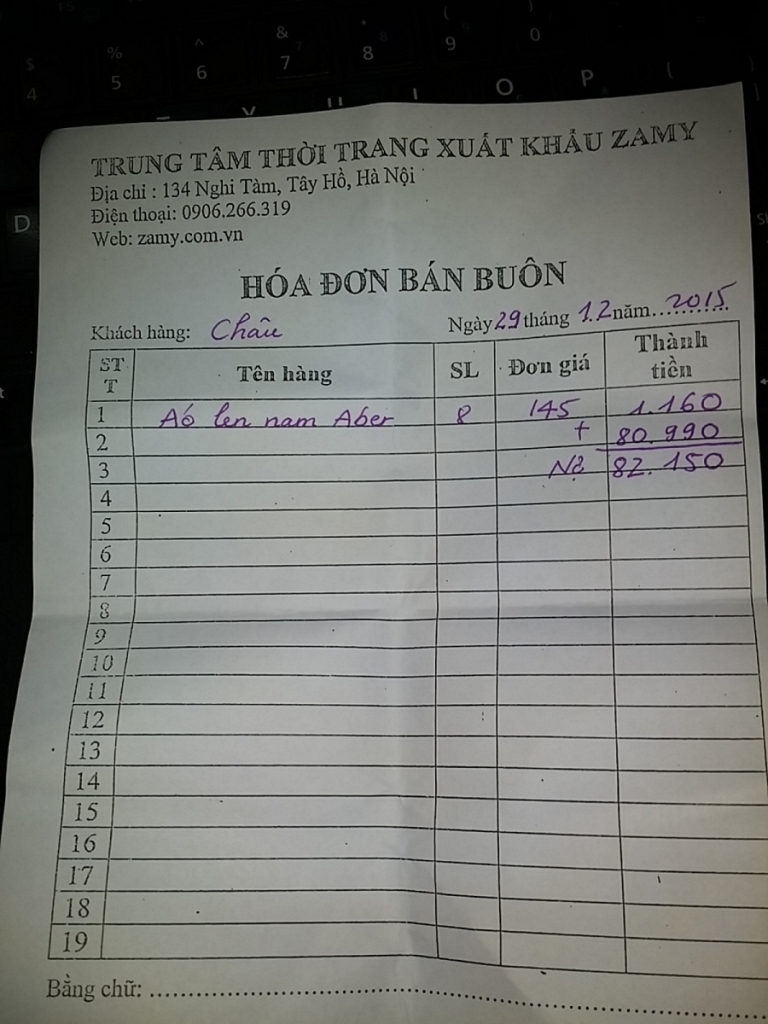 $ 4 % 5 ^ 6 & 7 * 8 ( 9 ) 0
Y U I O P {
D
TRUNG TÂM THỜI TRANG XUẤT KHẨU ZAMY
Địa chỉ : 134 Nghi Tàm, Tây Hồ, Hà Nội
Điện thoại: 0906.266.319
Web: zamy.com.vn
HÓA ĐƠN BÁN BUÔN
Khách hàng: Châu Ngày 29 tháng 12 năm 2015
STT Tên hàng SL Đơn giá Thành tiền
1 Aó len nam Aber 8 145 1.160
2 + 80.990
3 Nợ 82.150
4
5
6
7
8
9
10
11
12
13
14
15
16
17
18
19
Bằng chữ: ................................